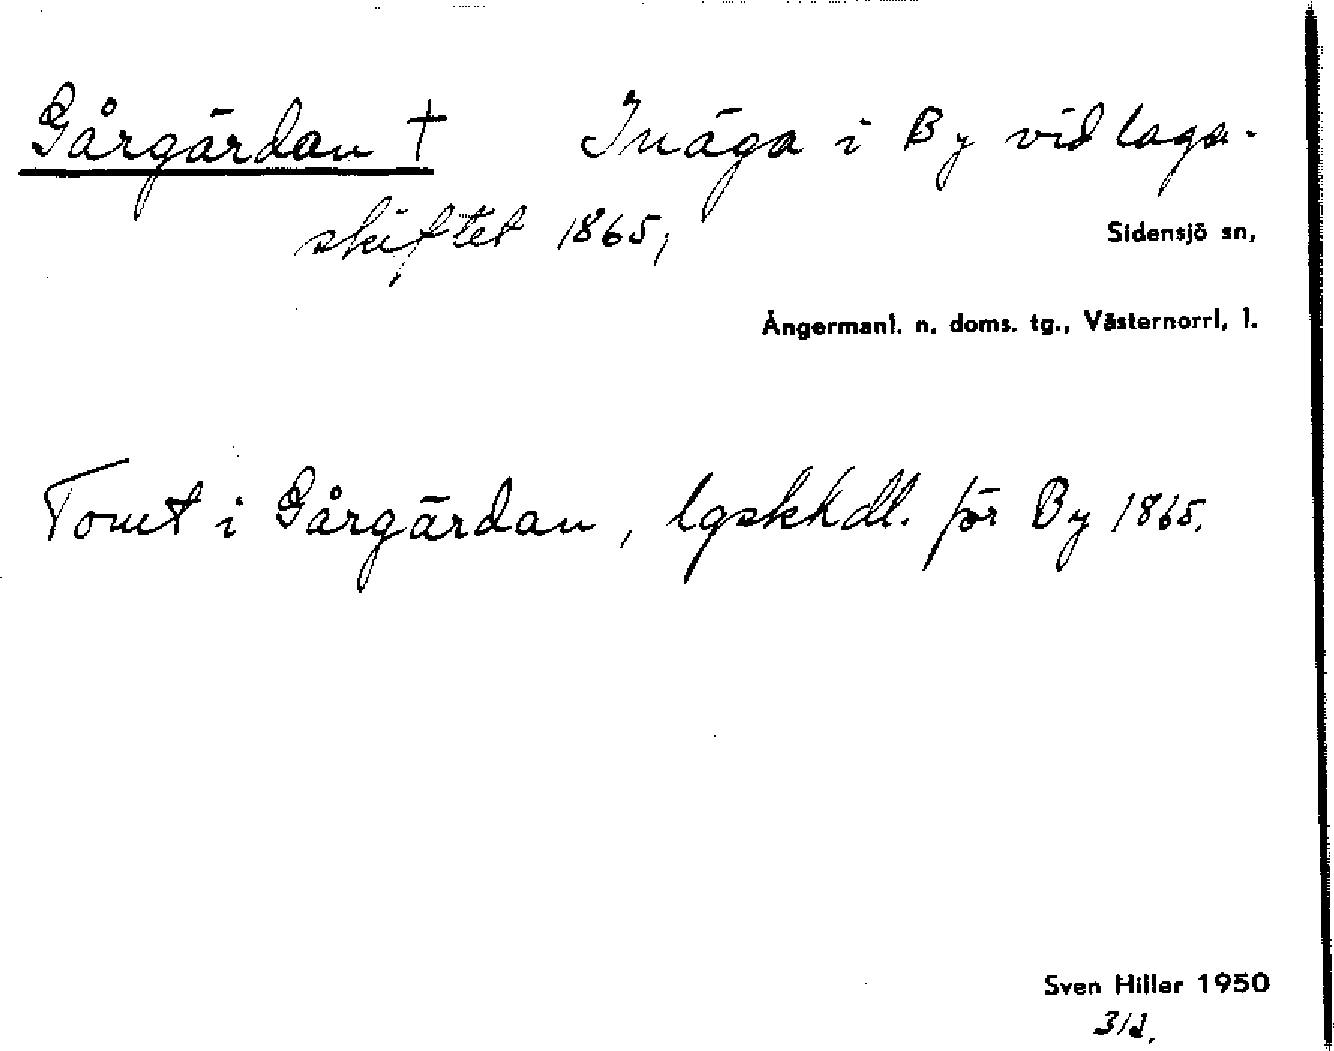 Gårgärdan † Inäga i By vid laga-
skiftet 1865,
Sidensjö sn,
Ångermanl. n. doms. tg., Västernorrl. l.
Tomt i Gårgärdan, lgskhdl. för By 1865.
Sven Hiller 1950